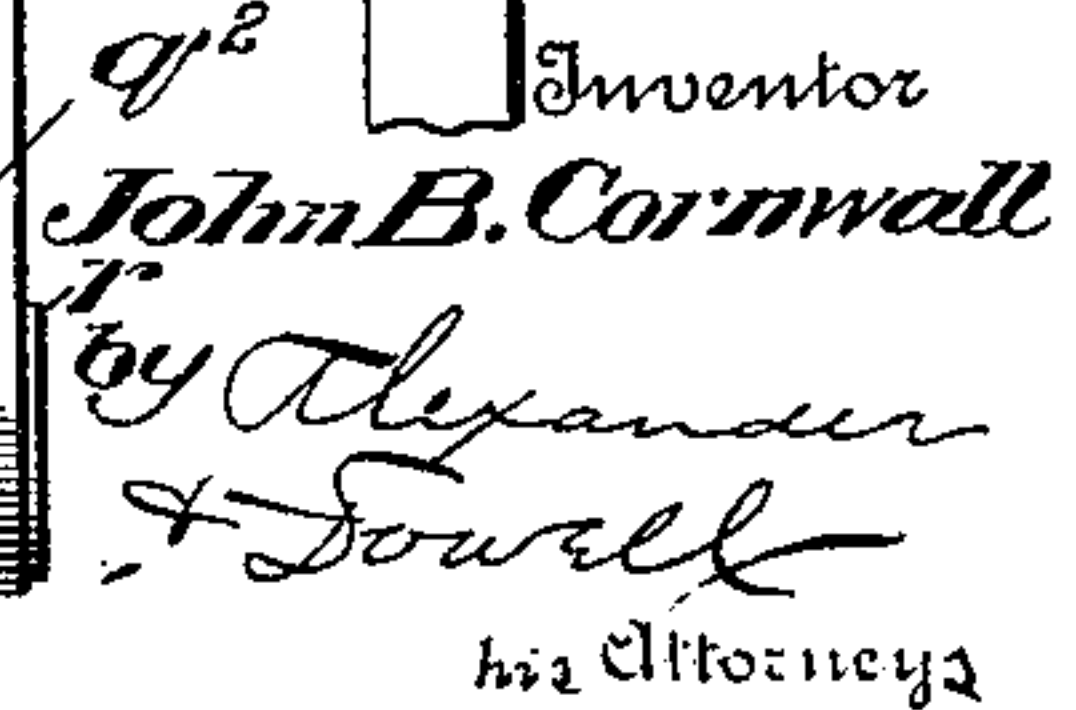 q²
Inventor
John B. Cornwall
r
by Alexander
& Dowell
his Attorneys